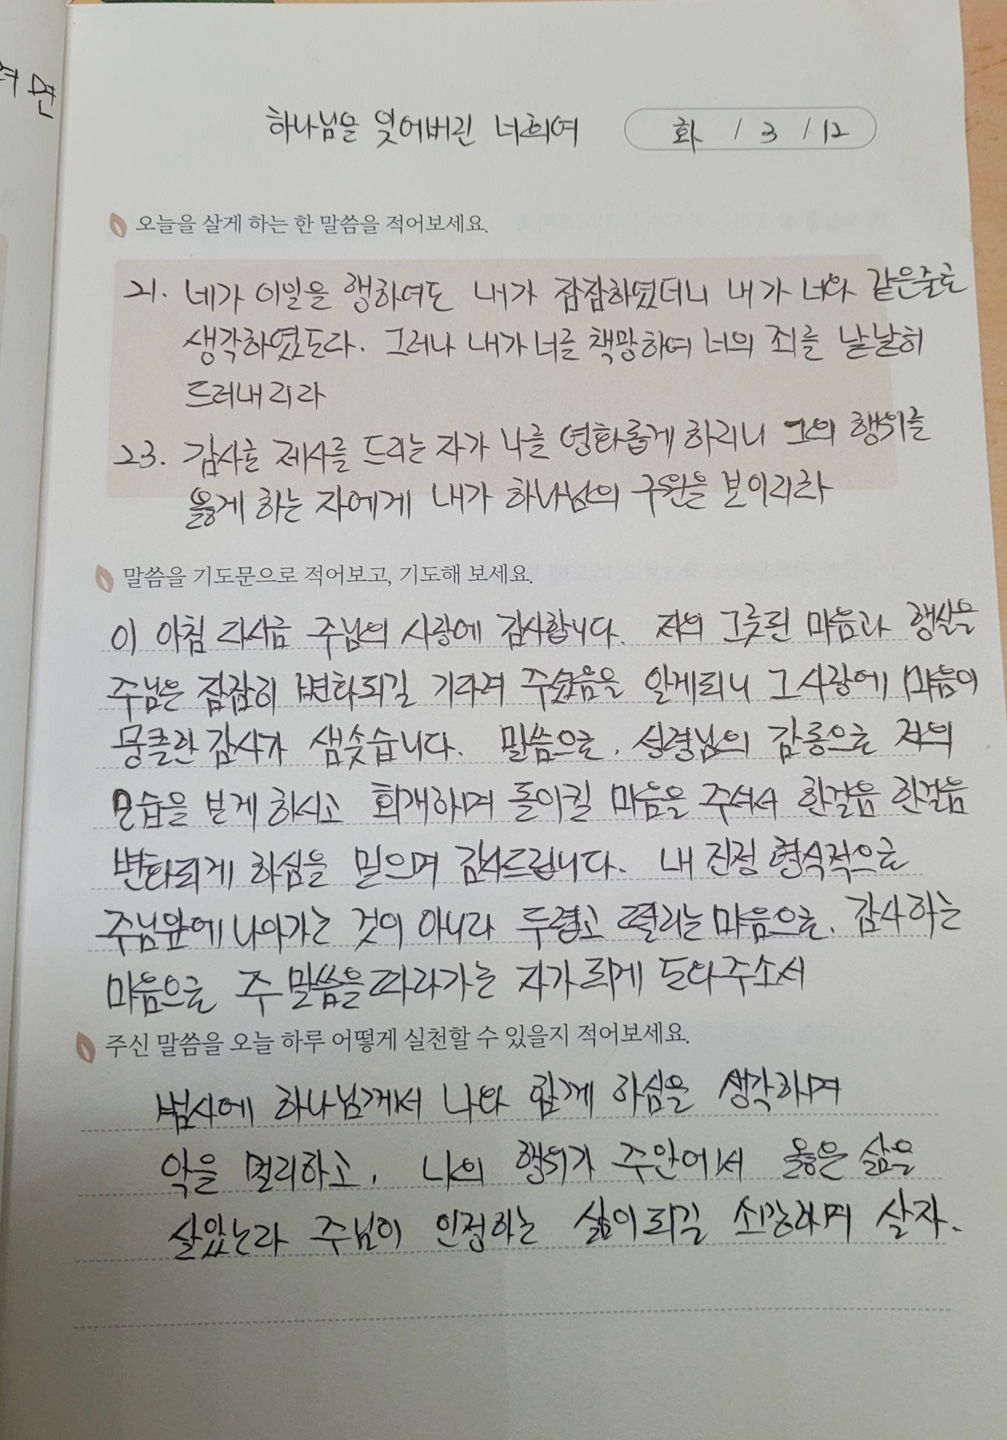 려면
하나님을 잊어버린 너희여 화 / 3 / 12
오늘을 살게 하는 한 말씀을 적어보세요.
21. 네가 이일을 행하여도 내가 잠잠하였더니 내가 너와 같은줄로
생각하였도다. 그러나 내가 너를 책망하여 너의 죄를 낱낱히
드러내리라
23. 감사로 제사를 드리는 자가 나를 영화롭게 하리니 그의 행위를
옳게 하는 자에게 내가 하나님의 구원을 보이리라
말씀을 기도문으로 적어보고, 기도해 보세요.
이 아침 다시금 주님의 사랑에 감사합니다. 저의 그릇된 마음과 행실을
주님은 잠잠히 변화되길 기다려 주셨음을 알게되니 그 사랑에 마음이
뭉클한 감사가 샘솟습니다. 말씀으로, 성령님의 감동으로 저의
모습을 보게 하시고 회개하며 돌이킬 마음을 주셔서 한걸음 한걸음
변화되게 하심을 믿으며 감사드립니다. 내 진정 형식적으로
주님앞에 나아가는 것이 아니라 두렵고 떨리는 마음으로, 감사하는
마음으로 주 말씀을 따라가는 자가 되게 도와주소서
주신 말씀을 오늘 하루 어떻게 실천할 수 있을지 적어보세요.
범사에 하나님께서 나와 함께 하심을 생각하며
악을 멀리하고, 나의 행위가 주안에서 옳은 삶을
살았노라 주님이 인정하는 삶이되길 소망하며 살자.